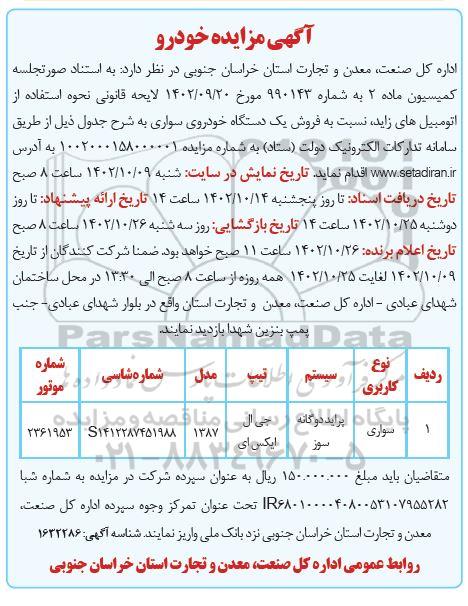 آگهی مزایده خودرو
اداره کل صنعت، معدن و تجارت استان خراسان جنوبی در نظر دارد: به استناد صورتجلسه
کمیسیون ماده ۲ به شماره ۹۹۰۱۴۳ مورخ ۱۴۰۲/۰۹/۲۰ لایحه قانونی نحوه استفاده از
اتومبیل های زاید، نسبت به فروش یک دستگاه خودروی سواری به شرح جدول ذیل از طریق
سامانه تدارکات الکترونیک دولت (ستاد) به شماره مزایده ۱۰۰۲۰۰۰۱۵۸۰۰۰۰۰۱ به آدرس
www.setadiran.ir اقدام نماید. تاریخ نمایش در سایت: شنبه ۱۴۰۲/۱۰/۰۹ ساعت ۸ صبح
تاریخ دریافت اسناد: تا روز پنجشنبه ۱۴۰۲/۱۰/۱۴ ساعت ۱۴ تاریخ ارائه پیشنهاد: تا روز
دوشنبه ۱۴۰۲/۱۰/۲۵ ساعت ۱۴ تاریخ بازگشایی: روز سه شنبه ۱۴۰۲/۱۰/۲۶ ساعت ۸ صبح
تاریخ اعلام برنده: ۱۴۰۲/۱۰/۲۶ ساعت ۱۱ صبح خواهد بود. ضمنا شرکت کنندگان از تاریخ
۱۴۰۲/۱۰/۰۹ لغایت ۱۴۰۲/۱۰/۲۵ همه روزه از ساعت ۸ صبح الی ۱۳:۳۰ در محل ساختمان
شهدای عبادی - اداره کل صنعت، معدن و تجارت استان واقع در بلوار شهدای عبادی- جنب
پمپ بنزین شهدا بازدید نمایند.
ردیف نوع کاربری سیستم تیپ مدل شماره شاسی شماره موتور
۱ سواری پراید دوگانه سوز جی ال ایکس ای ۱۳۸۷ S۱۴۱۲۲۸۷۴۵۱۹۸۸ ۲۳۶۱۹۵۳
متقاضیان باید مبلغ ۱۵۰.۰۰۰.۰۰۰ ریال به عنوان سپرده شرکت در مزایده به شماره شبا
IR۶۸۰۱۰۰۰۰۴۰۸۰۰۵۳۱۰۷۹۵۵۲۸۲ تحت عنوان تمرکز وجوه سپرده اداره کل صنعت،
معدن و تجارت استان خراسان جنوبی نزد بانک ملی واریز نمایند. شناسه آگهی: ۱۶۳۲۲۸۶
روابط عمومی اداره کل صنعت، معدن و تجارت استان خراسان جنوبی
ParsNamadData
پایگاه اطلاع رسانی مناقصه و مزایده
۰۲۱-۸۸۳۴۹۶۷۰-۵